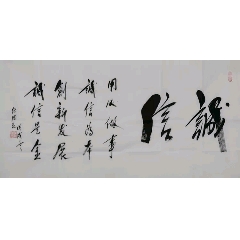 誠信
用以做事
誠信為本
創新發展
誠信是金